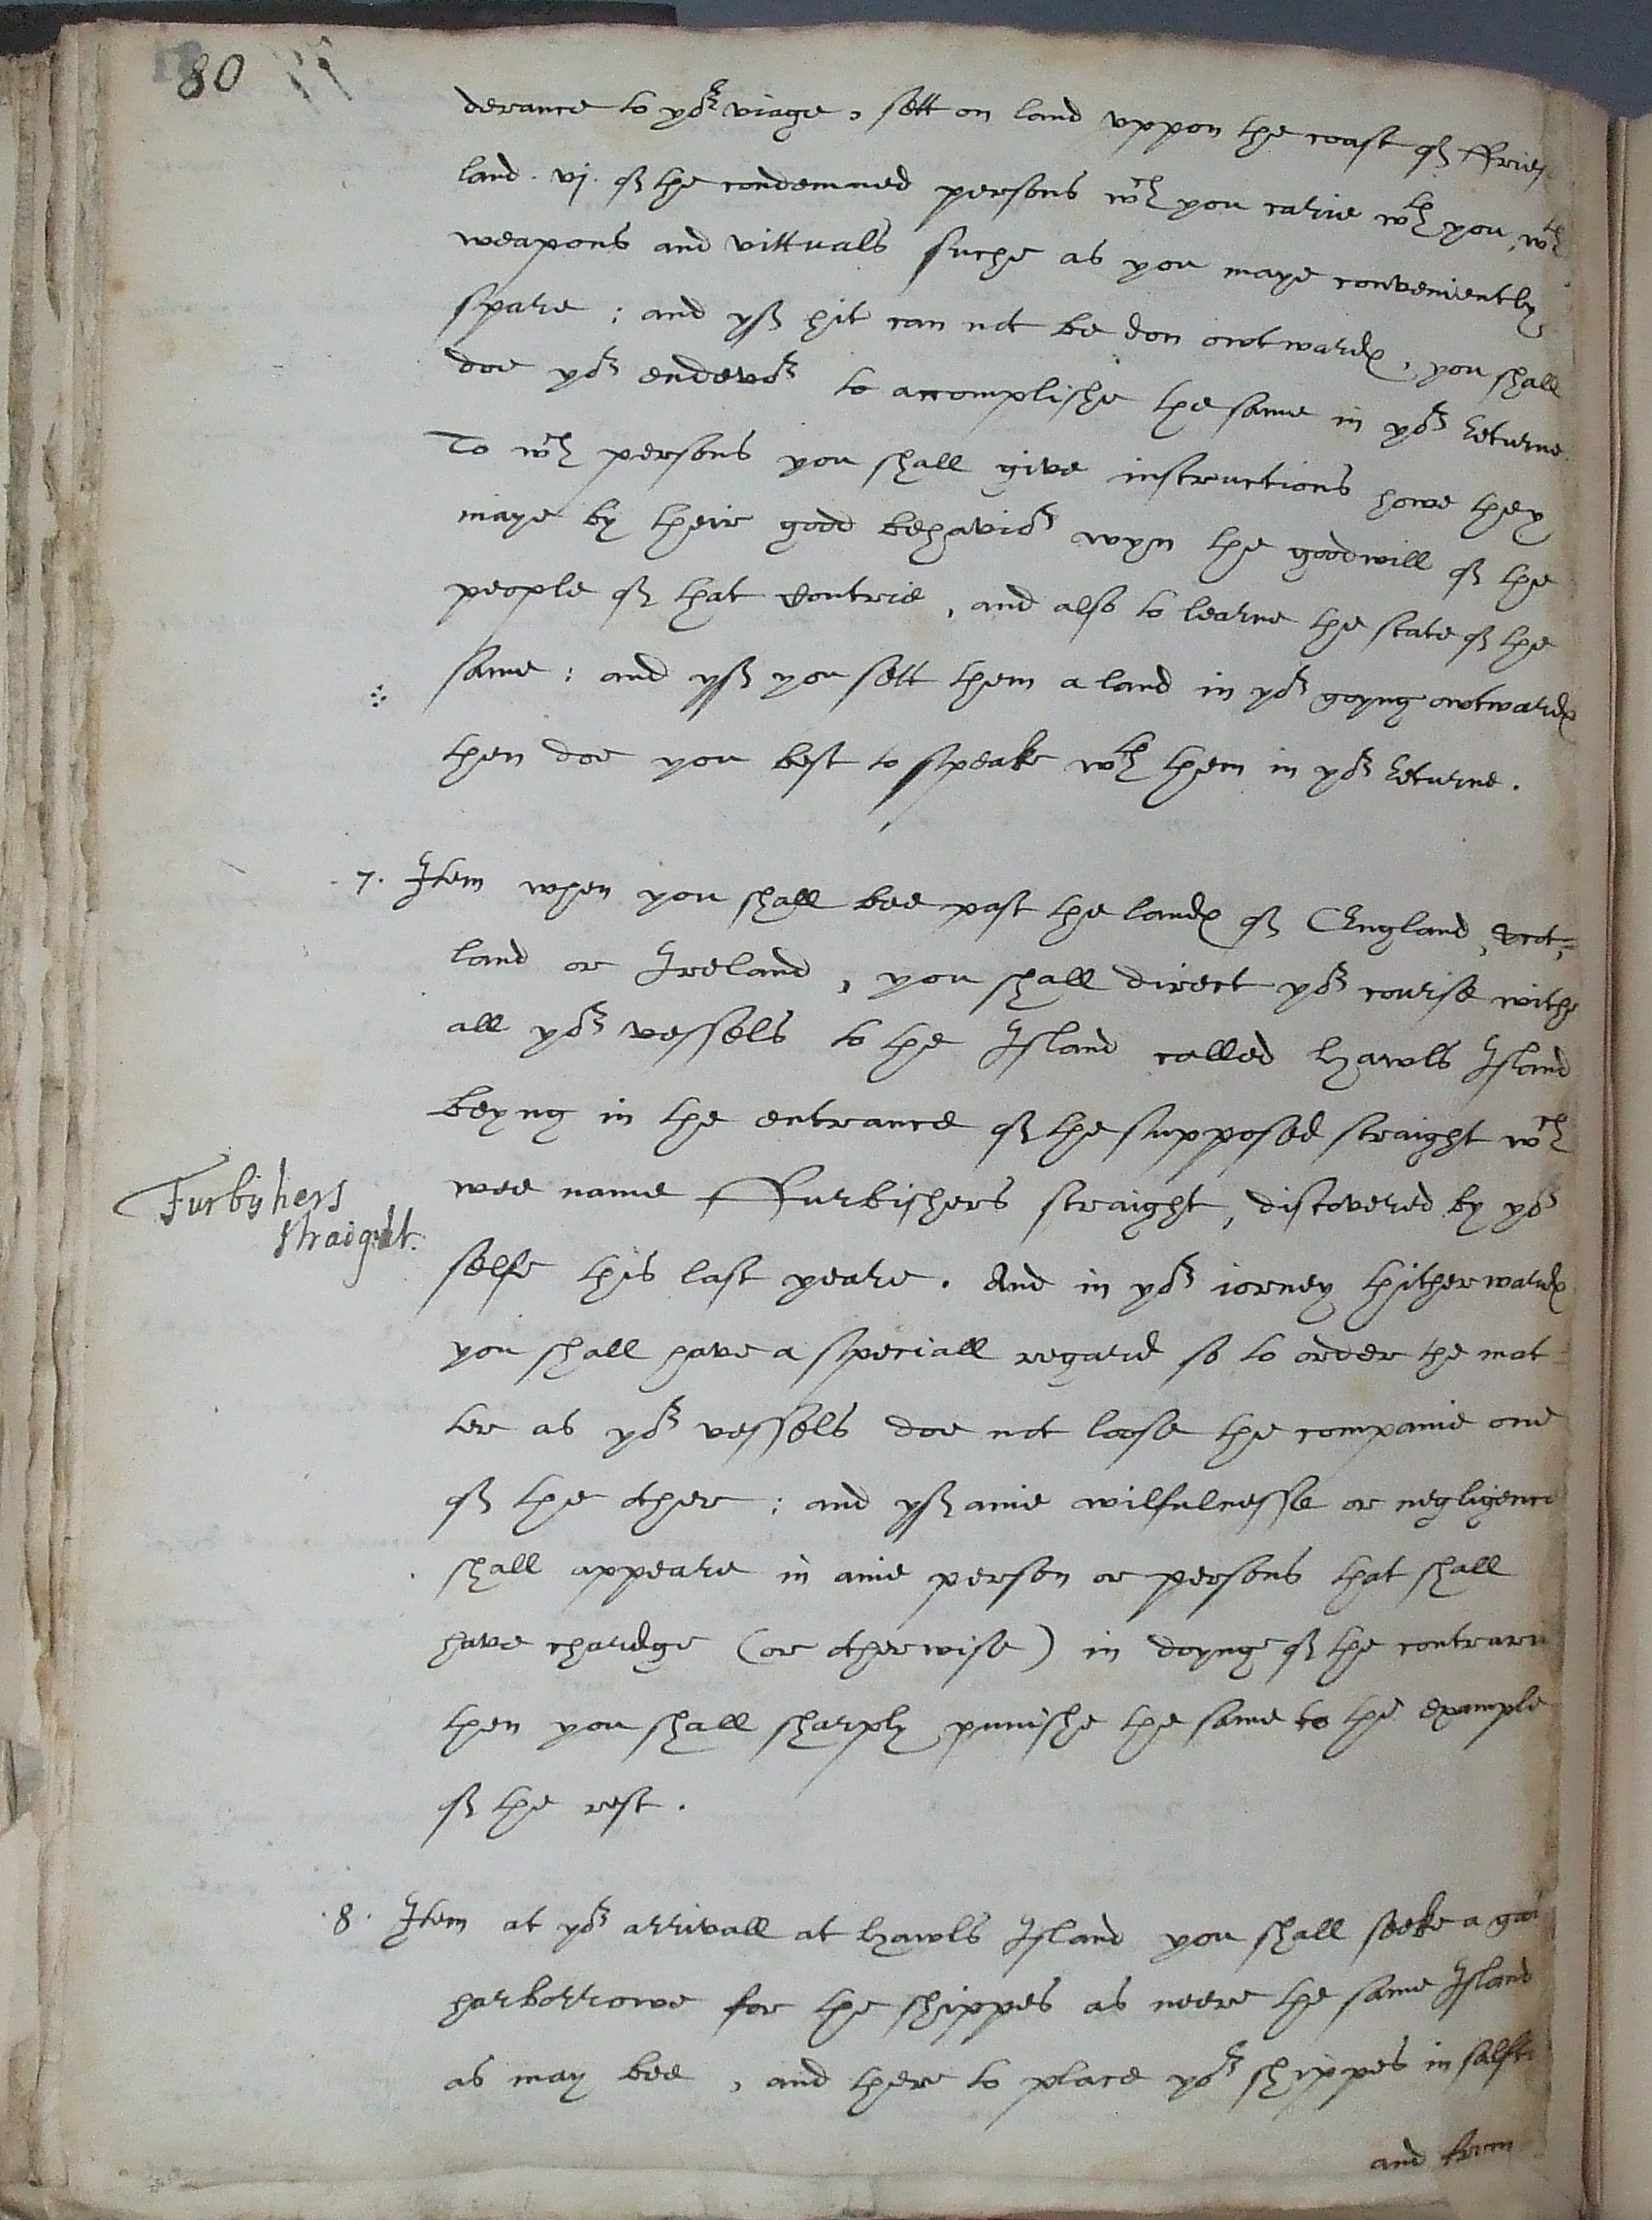 80
derance to yor viage, sett on land vppon the coast of ffries
land . vj. of the condemned persons wch you carie wth you, wth
weapons and vittuals suche as you maye conveniently
spare ; and yf hit can not be don owtwardes, you shall
doe yor endevor to accomplishe the same in yor returne
To wch persons you shall give instructions howe they
maye by their good behavior wyn the goodwill of the
people of that Contrie, and also to learne the state of the
same : and yf you sett them a land in yor goyng owtwardes
then doe you best to speake wth them in yor returne .
. 7 . Item when you shall bee past the landes of England, Scot=
land or Ireland, you shall direct yor course withe
all yor vessels to the Island called Hawls Island
beyng in the entrance of the supposed straight wch
wee name ffurbishers straight, discovered by yor
Furbishers
straight.
selfe this last yeare . And in yor iorney thitherwardes
you shall have a speciall regard so to order the mat=
ter as yor vessels doe not loose the companie one
of the other ; and yf anie wilfulnesse or negligence
shall appeare in anie person or persons that shall
have chardge (or otherwise) in doynge of the contrarie
then you shall sharply punishe the same to the example
of the rest .
. 8 . Item at yor arrivall at Hawls Island you shall seeke a
harborrowe for the shippes as neere the same Island
as may bee, and there to place yor shippes in
and